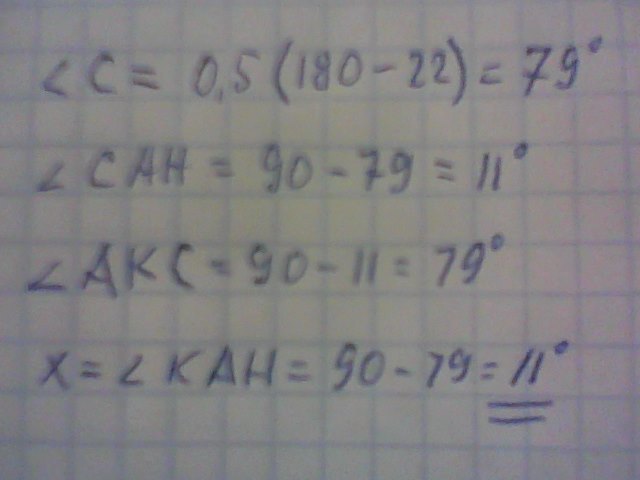 ∠C = 0,5(180-22)=79°
∠CAH = 90-79=11°
∠AKC=90-11=79°
x=∠KAH=90-79=11°